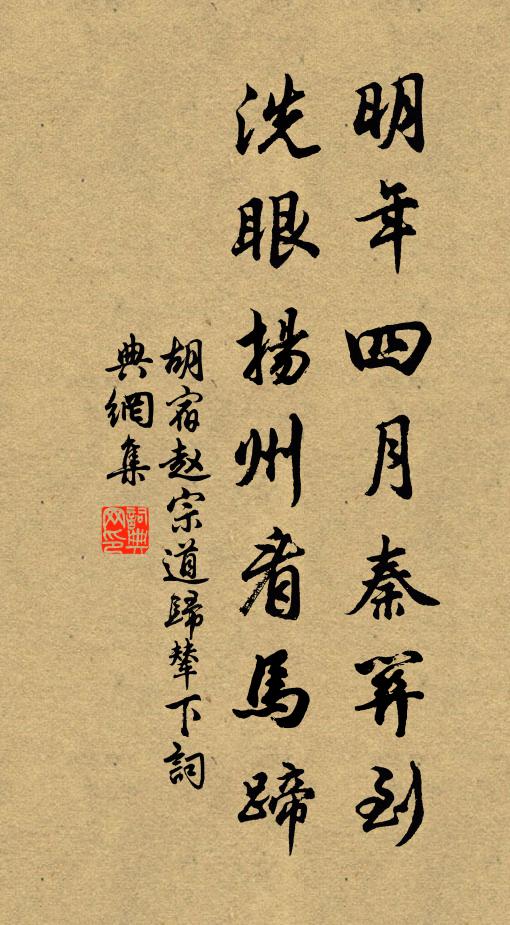 明年四月秦關到
洗眼揚州看馬蹄
胡宿赵宗道歸輦下詞
典網集
詞典網印